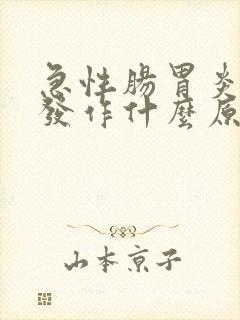 急性腸胃炎
發作什麼原
山本京子